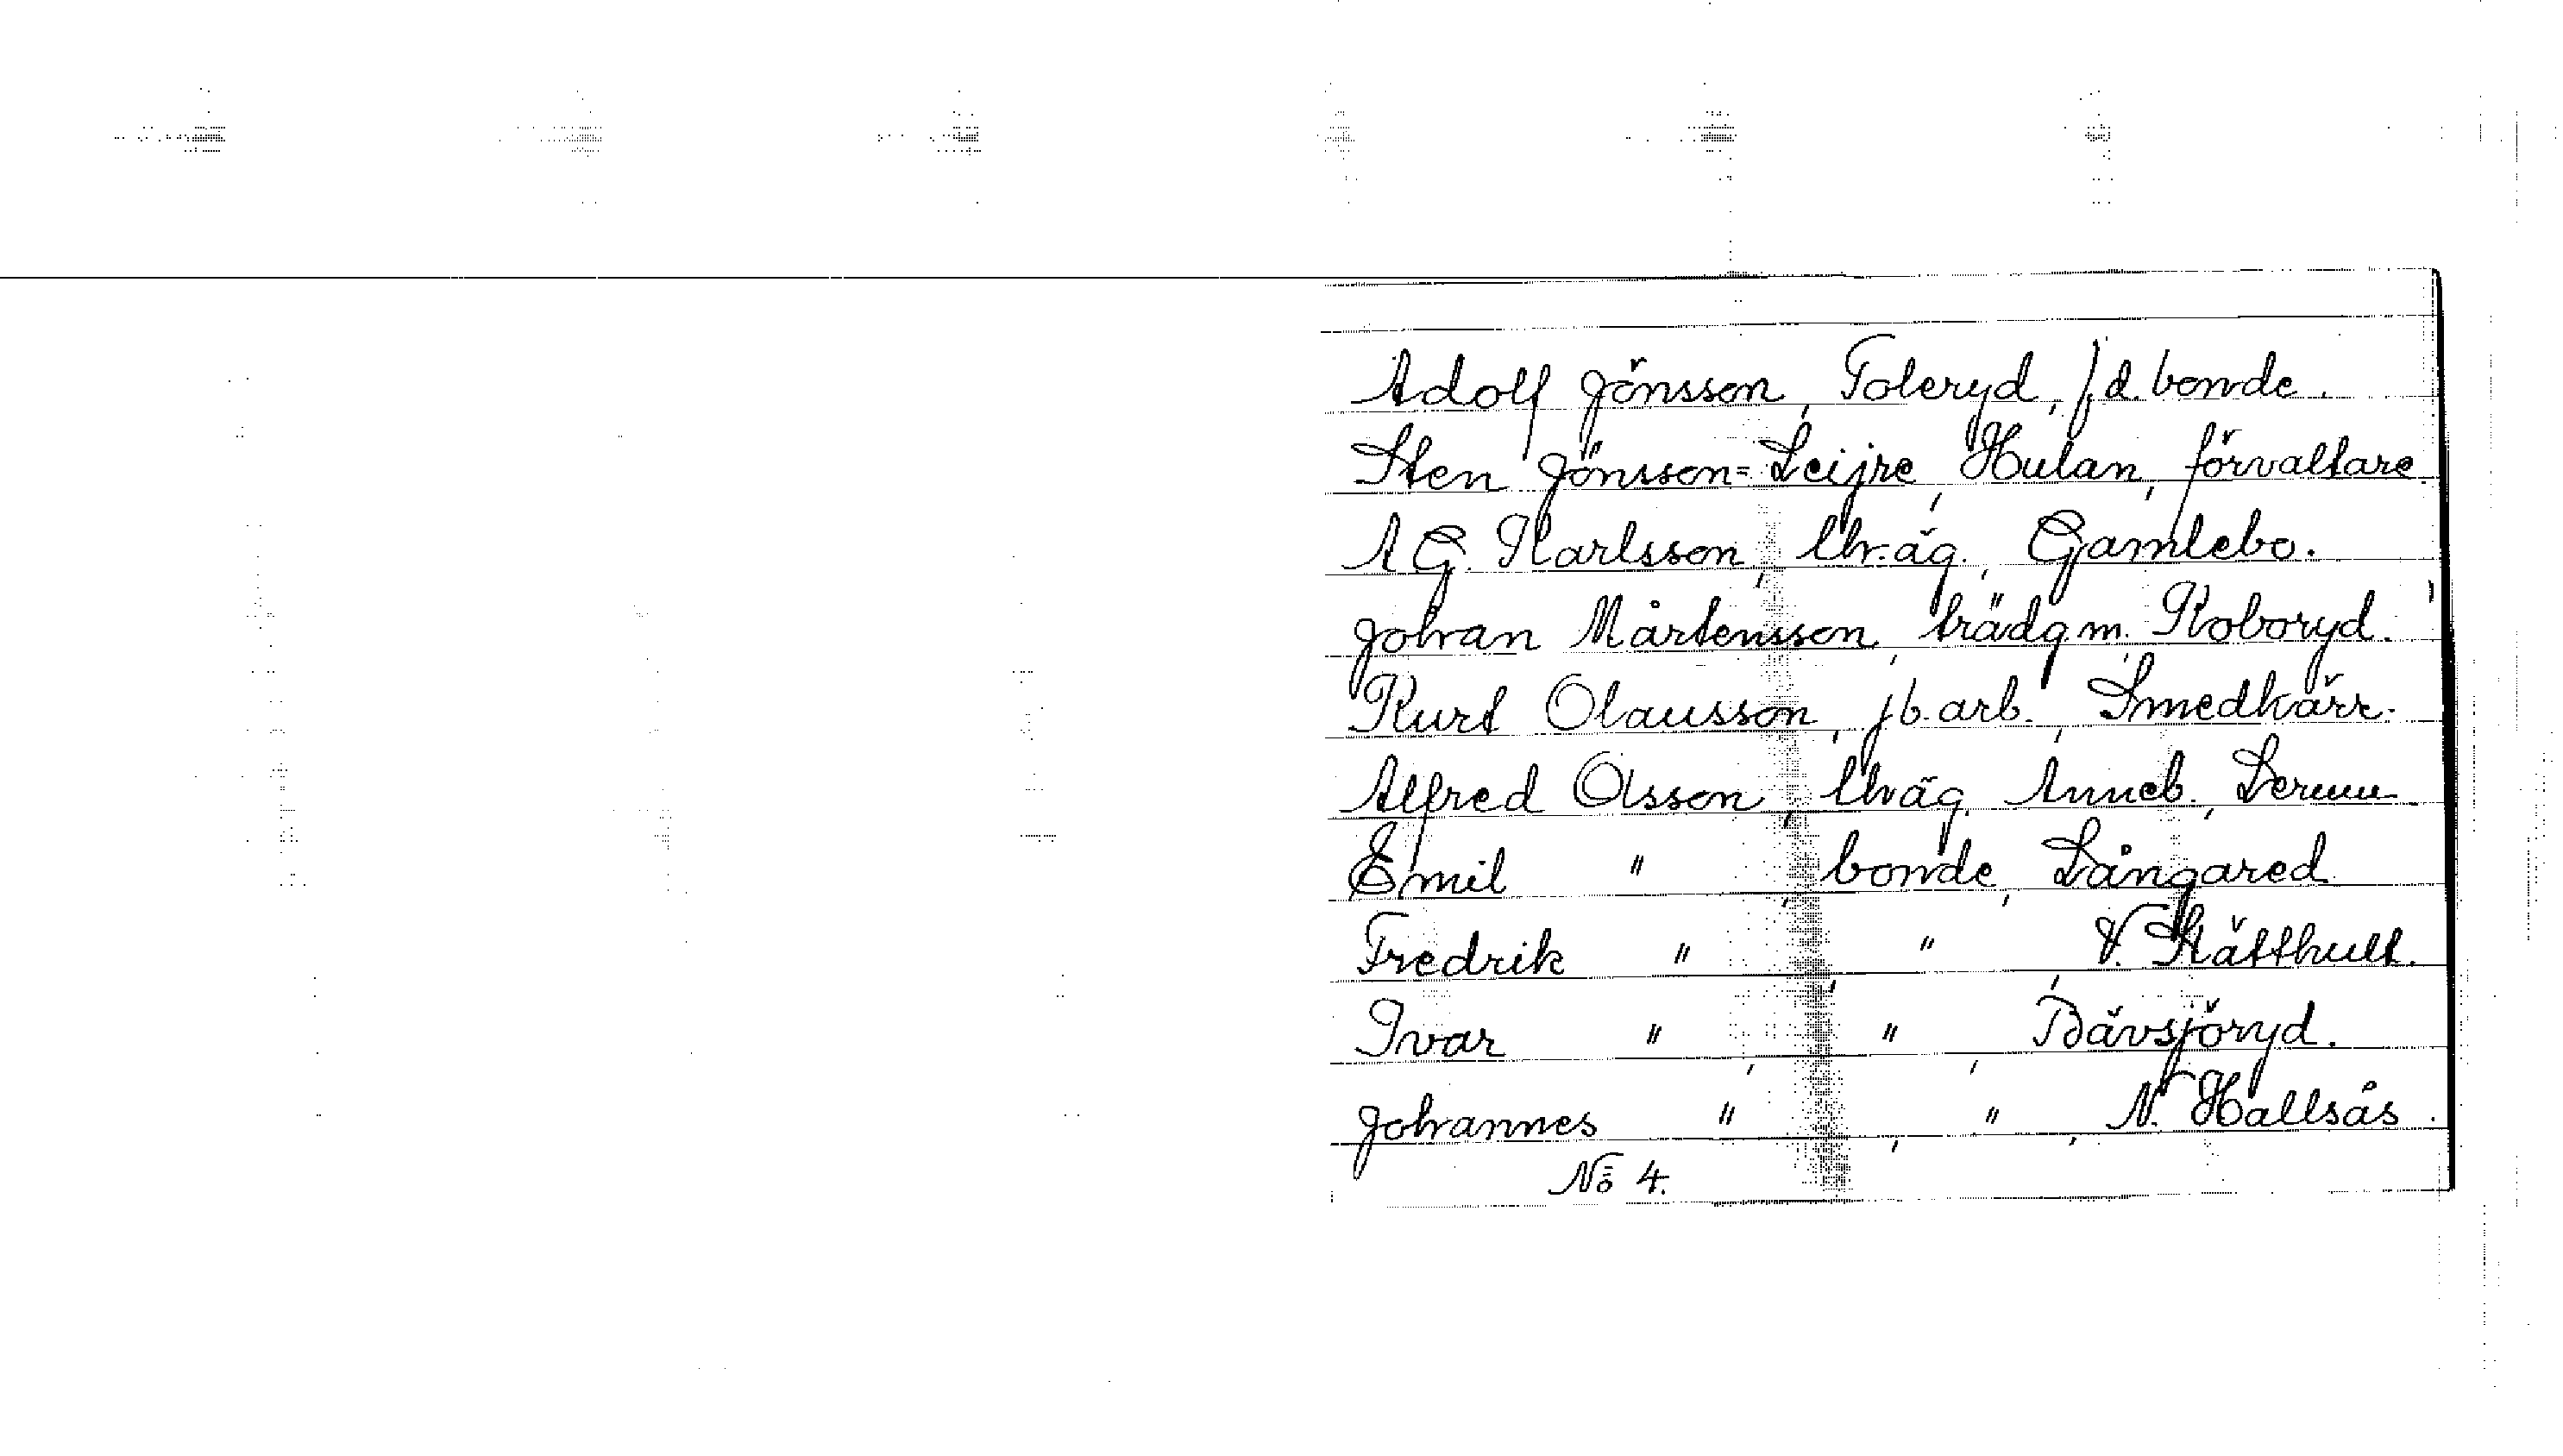 Adolf Jönsson, Toleryd, f.d. bonde.
Sten Jönsson=Leijre, Hulan, förvaltare.
A G. Karlsson, lhr.äg., Gamlebo.
Johan Mårtensson, trädgm. Roboryd.
Kurt Olausson, jb. arb., Smedkärr.
Alfred Olsson, lhräg. Anneb., Lerum.
Emil " , bonde, Långared.
Fredrik " , " , V. Stätthult.
Ivar " , " , Bävsjöryd.
Johannes " , " , N. Hallsås.
No 4.